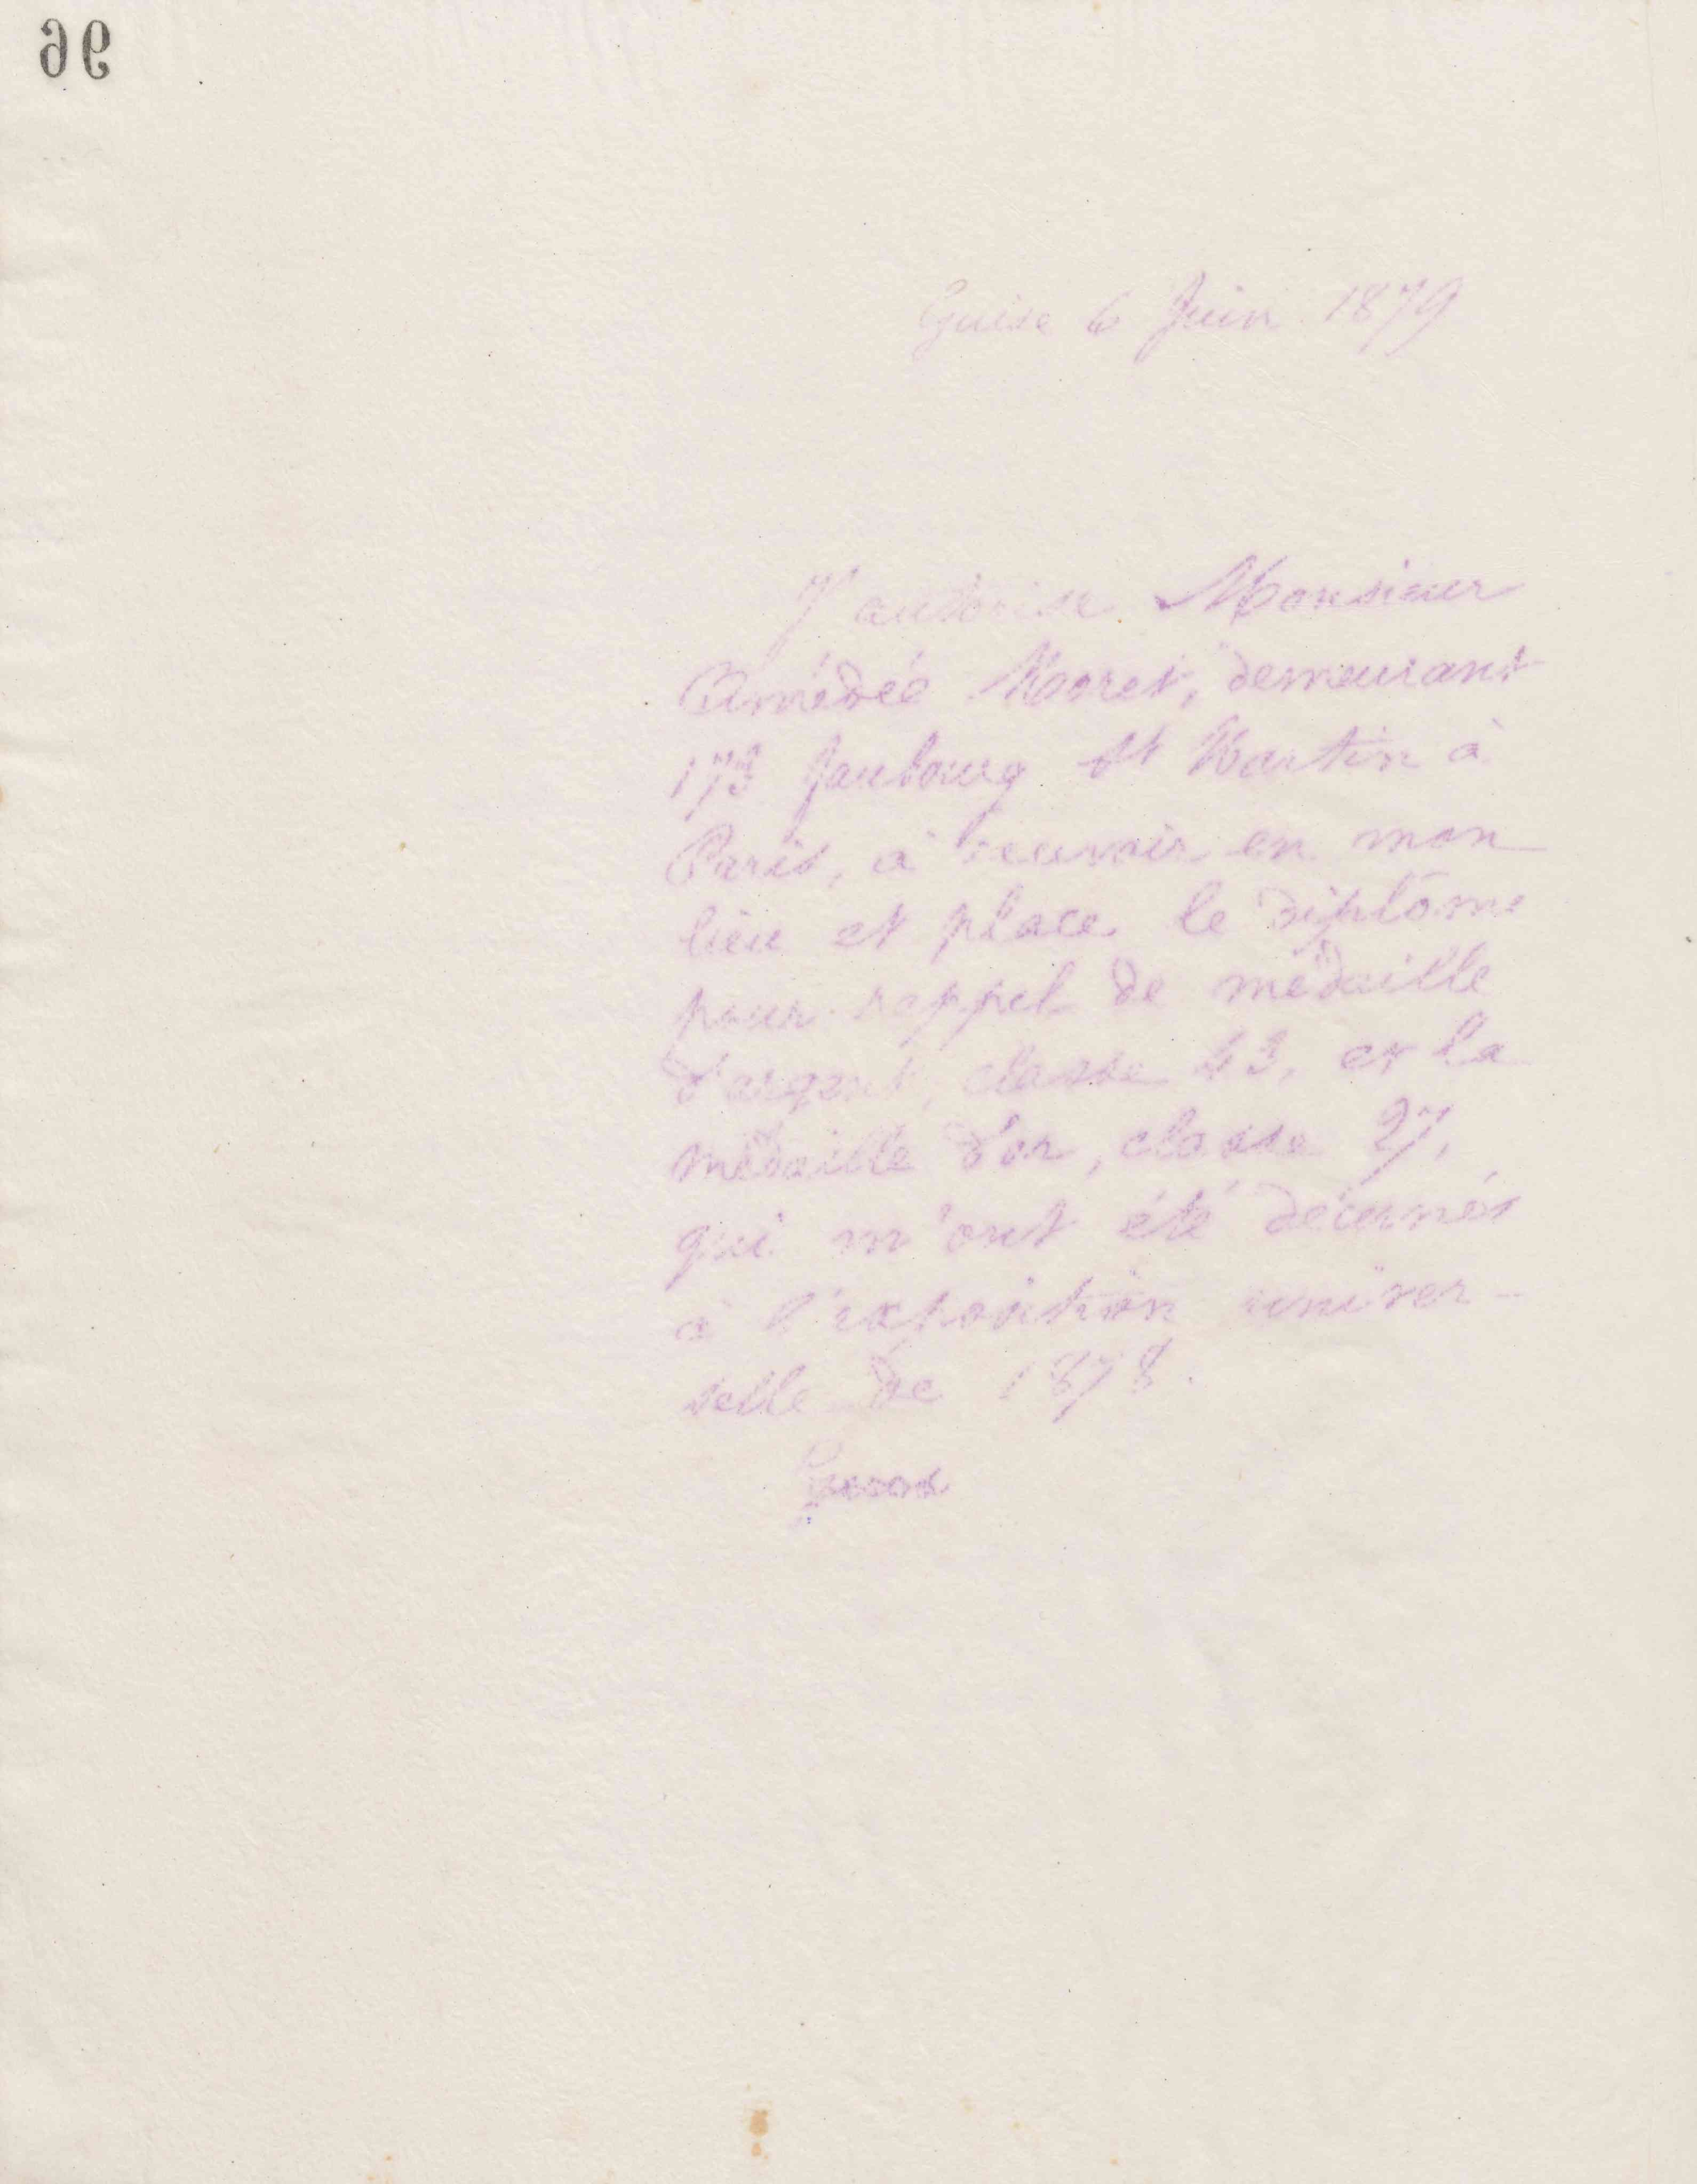 96
Guise 6 Juin 1879
J'autorise Monsieur
Amédée Moret, demeurant
173 faubourg St Martin à
Paris, à recevoir en mon
lieu et place le diplôme
pour rappel de médaille
d'argent, classe 43, et la
médaille d'or, classe 27,
qui m'ont été décernés
à l'exposition univer-
selle de 1878.